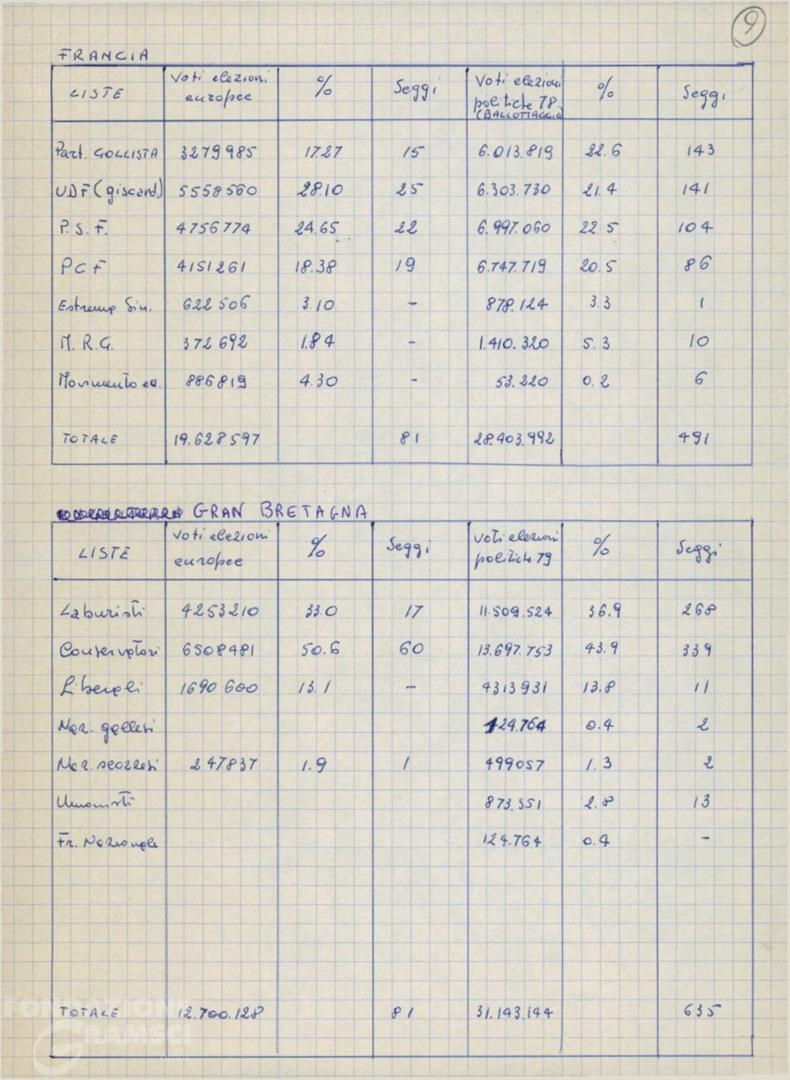 9
FRANCIA
LISTE | Voti elezioni europee | % | Seggi | Voti elezioni politiche 78 (BALLOTTAGGIO) | % | Seggi
Part. GOLLISTA | 3279985 | 17.27 | 15 | 6.013.819 | 22.6 | 143
UDF (giscard) | 5558560 | 28.10 | 25 | 6.303.730 | 21.4 | 141
P.S.F. | 4756774 | 24.65 | 22 | 6.997.060 | 22 5 | 104
PCF | 4151261 | 18.38 | 19 | 6.747.719 | 20.5 | 86
Estrema Sin. | 622 506 | 3.10 | - | 878.124 | 3.3 | 1
M.R.G. | 372 692 | 1.84 | - | 1.410.320 | 5.3 | 10
Movimento ec. | 886819 | 4.30 | - | 53.220 | 0.2 | 6
TOTALE | 19.628597 | 81 | 28.403.992 | 491
GRAN BRETAGNA
LISTE | Voti elezioni europee | % | Seggi | Voti elezioni politiche 79 | % | Seggi
Laburisti | 4253210 | 33.0 | 17 | 11.509.524 | 36.9 | 268
Conservatori | 6508481 | 50.6 | 60 | 13.697.753 | 43.9 | 339
Liberali | 1690600 | 13.1 | - | 4313931 | 13.8 | 11
Naz. gallesi | 124.764 | 0.4 | 2
Naz. scozzesi | 247837 | 1.9 | 1 | 499057 | 1.3 | 2
Unionisti | 873.351 | 2.8 | 13
Fr. Nazionale | 124.764 | 0.4 | -
TOTALE | 12.700.128 | 81 | 31.143.144 | 635
FONDAZIONE
GRAMSCI